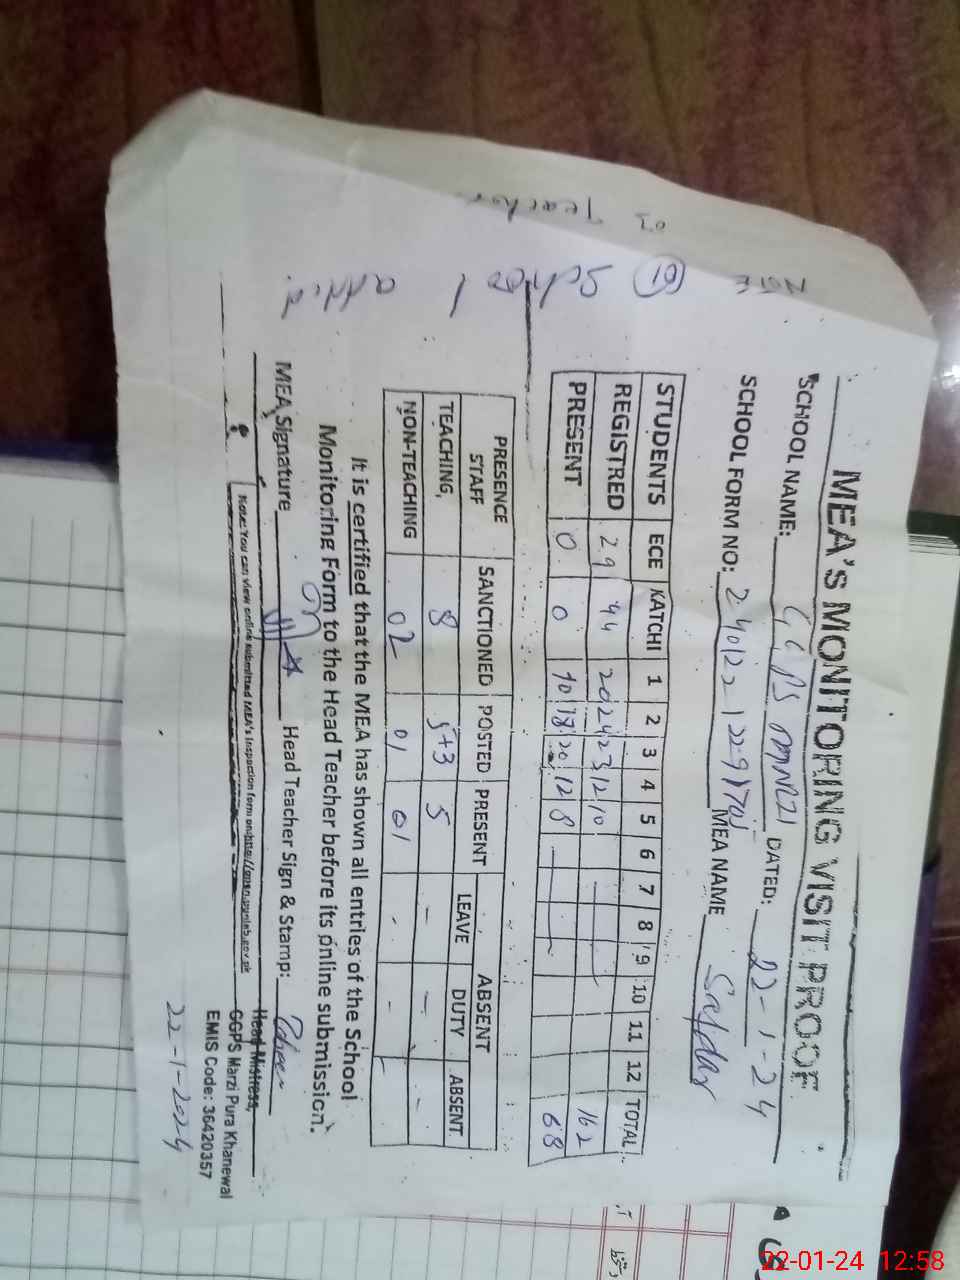 MEA'S MONITORING VISIT PROOF
SCHOOL NAME: GGPS DATED: 22-1-24
SCHOOL FORM NO: MEA NAME Safdar
STUDENTS ECE KATCHI 1 2 3 4 5 6 7 8 9 10 11 12 TOTAL
REGISTRED 29 44 20 24 23 12 10 162
PRESENT 0 0 10 18 20 12 8 68
PRESENCE STAFF SANCTIONED POSTED PRESENT ABSENT
LEAVE DUTY ABSENT
TEACHING, 8 5+3 5 - - -
NON-TEACHING 02 01 01 - -
It is certified that the MEA has shown all entries of the School
Monitoring Form to the Head Teacher before its online submission.
MEA Signature Head Teacher Sign & Stamp:
Note: You can view online submitted MEA's Inspection form on
Head Mistress,
GGPS Marzi Pura Khanewal
EMIS Code: 36420357
22-1-2024
Teacher
22-01-24 12:58